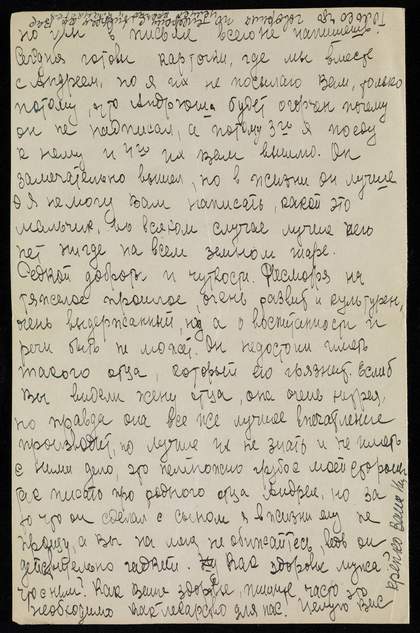 но уж в письме всего не напишешь.
Сегодня готовы карточки, где мы вместе
с Андреем, но я их не посылаю Вам, только
потому, что Андрюша будет огорчен почему
он не надписал, а потому 3го я поеду
к нему и 4го их Вам вышлю. Он
замечательно вышел, но в жизни он лучше
Я не могу Вам написать, какой это
мальчик, во всяком случае лучше его
нет нигде на всем земном шаре.
Редкой доброты и чуткости. Несмотря на
тяжелое прошлое, очень развит и культурен,
очень выдержанный, ну а о воспитанности и
речи быть не может. Он недостоин иметь
такого отца, который его грязнит. Если б
Вы видели жену отца, она очень
но правда она все же лучшее впечатление
производит, но лучше их не знать и не иметь
с ними дело, это немножко грубо с моей стороны
писать про родного отца Андрея, но за
то что он сделал с сыном я в жизни ему не
прощу, а Вы на меня не обижайтесь, ведь он
действительно Как здоровье мужа
что с ним? Как Ваше здоровье, пишите часто это
необходимо как лекарство для нас. Целую Вас
крепко Ваша